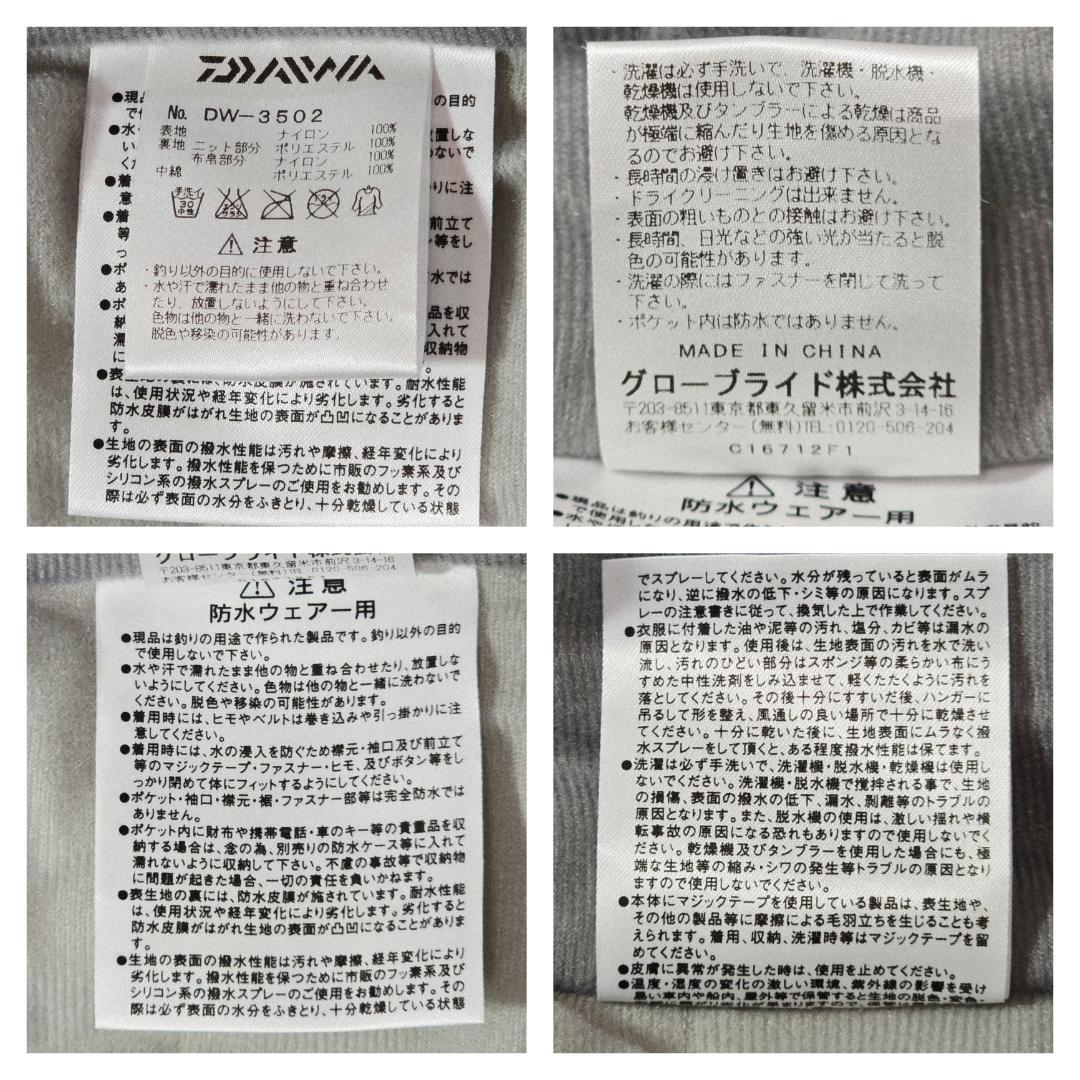 DAIWA
No. DW-3502
表地 ナイロン 100%
裏地 ニット部分 ポリエステル 100%
布帛部分 ナイロン 100%
中綿 ポリエステル 100%
手洗イ
30
中性
注意
・釣り以外の目的に使用しないで下さい。
・水や汗で濡れたまま他の物と重ね合わせ
たり、放置しないようにして下さい。
色物は他の物と一緒に洗わないで下さい。
脱色や移染の可能性があります。
は、使用状況や経年変化により劣化します。劣化すると
防水皮膜がはがれ生地の表面が凸凹になることがありま
す。
●生地の表面の撥水性能は汚れや摩擦、経年変化により
劣化します。撥水性能を保つために市販のフッ素系及び
シリコン系の撥水スプレーのご使用をお勧めします。その
際は必ず表面の水分をふきとり、十分乾燥している状態
・洗濯は必ず手洗いで、洗濯機・脱水機・
乾燥機は使用しないで下さい。
乾燥機及びタンブラーによる乾燥は商品
が極端に縮んだり生地を傷める原因とな
るのでお避け下さい。
・長時間の浸け置きはお避け下さい。
・ドライクリーニングは出来ません。
・表面の粗いものとの接触はお避け下さい。
・長時間、日光などの強い光が当たると脱
色の可能性があります。
・洗濯の際にはファスナーを閉じて洗って
下さい。
・ポケット内は防水ではありません。
MADE IN CHINA
グローブライド株式会社
〒203-8511東京都東久留米市前沢3-14-16
お客様センター(無料)TEL:0120-506-204
C16712F1
注意
防水ウェアー用
グローブライド株式会社
〒203-8511東京都東久留米市前沢3-14-16
お客様センター(無料)TEL:0120-506-204
注意
防水ウェアー用
●現品は釣りの用途で作られた製品です。釣り以外の目的
で使用しないで下さい。
●水や汗で濡れたまま他の物と重ね合わせたり、放置しな
いようにしてください。色物は他の物と一緒に洗わないで
ください。脱色や移染の可能性があります。
●着用時には、ヒモやベルトは巻き込みや引っ掛かりに注
意してください。
●着用時には、水の浸入を防ぐため襟元・袖口及び前立て
等のマジックテープ・ファスナー・ヒモ、及びボタン等をし
っかり閉めて体にフィットするようにしてください。
●ポケット・袖口・襟元・裾・ファスナー部等は完全防水では
ありません。
●ポケット内に財布や携帯電話・車のキー等の貴重品を収
納する場合は、念の為、別売りの防水ケース等に入れて
濡れないように収納して下さい。不慮の事故等で収納物
に問題が起きた場合、一切の責任を負いかねます。
●表生地の裏には、防水皮膜が施されています。耐水性能
は、使用状況や経年変化により劣化します。劣化すると
防水皮膜がはがれ生地の表面が凸凹になることがありま
す。
●生地の表面の撥水性能は汚れや摩擦、経年変化により
劣化します。撥水性能を保つために市販のフッ素系及び
シリコン系の撥水スプレーのご使用をお勧めします。その
際は必ず表面の水分をふきとり、十分乾燥している状態
でスプレーしてください。水分が残っていると表面がムラ
になり、逆に撥水の低下・シミ等の原因になります。スプ
レーの注意書きに従って、換気した上で作業してください。
●衣服に付着した油や泥等の汚れ、塩分、カビ等は漏水の
原因となります。使用後は、生地表面の汚れを水で洗い
流し、汚れのひどい部分はスポンジ等の柔らかい布にう
すめた中性洗剤をしみ込ませて、軽くたたくように汚れを
落としてください。その後十分にすすいだ後、ハンガーに
吊るして形を整え、風通しの良い場所で十分に乾燥させ
てください。十分に乾いた後に、生地表面にムラなく撥
水スプレーをして頂くと、ある程度撥水性能は保てます。
●洗濯は必ず手洗いで、洗濯機・脱水機・乾燥機は使用し
ないでください。洗濯機・脱水機で撹拌される事で、生地
の損傷、表面の撥水の低下、漏水、剥離等のトラブルの
原因となります。また、脱水機の使用は、激しい揺れや横
転事故の原因になる恐れもありますので使用しないでく
ださい。乾燥機及びタンブラーを使用した場合にも、極
端な生地等の縮み・シワの発生等トラブルの原因となり
ますので使用しないでください。
●本体にマジックテープを使用している製品は、表生地や、
その他の製品等に摩擦による毛羽立ちを生じることも考
えられます。着用、収納、洗濯時等はマジックテープを留
めてください。
●皮膚に異常が発生した時は、使用を止めてください。
●温度・湿度の変化の激しい環境、紫外線の影響を受け
易い車内や船内、屋外等で保管すると生地の脱色・変色・